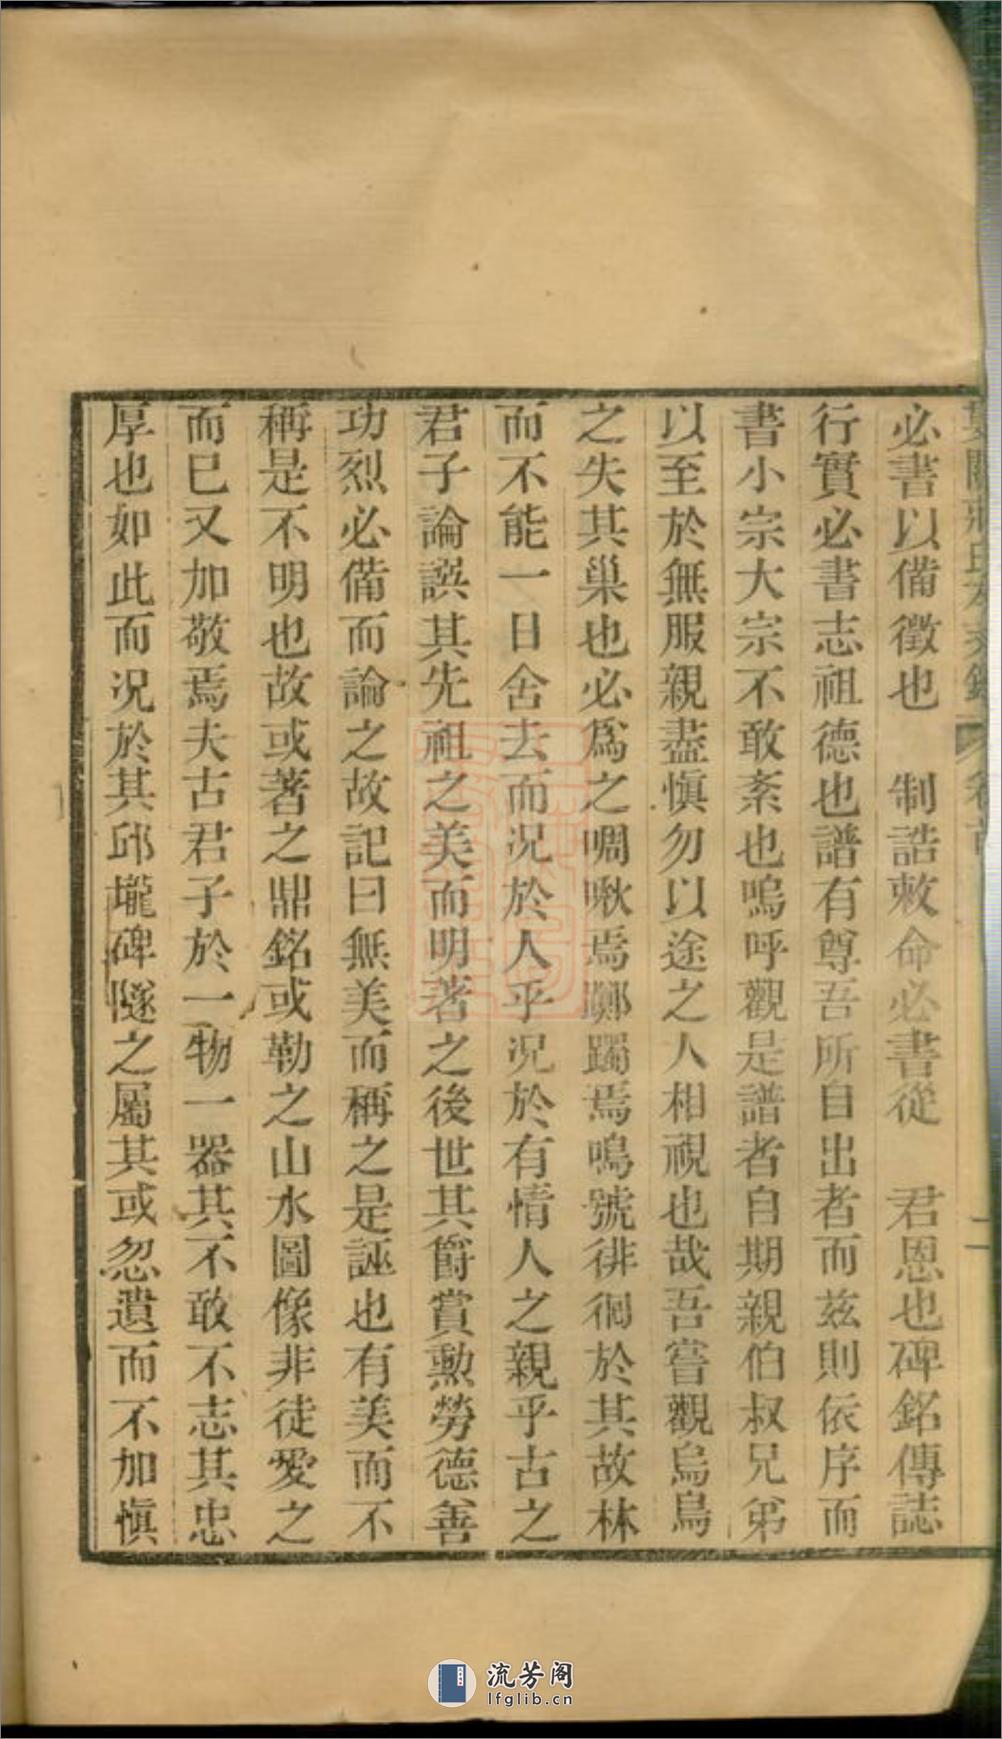 必書以備徵也　制誥敕命必書從　君恩也碑銘傳誌
行實必書志祖德也譜有尊吾所自出者而茲則依序而
書小宗大宗不敢紊也嗚呼觀是譜者自期親伯叔兄弟
以至於無服親盡愼勿以途之人相視也哉吾嘗觀烏鳥
之失其巢也必爲之啁啾焉躑躅焉鳴號徘徊於其故林
而不能一日舍去而況於人乎況於有情人之親乎古之
君子論譔其先祖之美而明著之後世其爵賞勲勞德善
功烈必備而論之故記曰無美而稱之是誣也有美而不
稱是不明也故或著之鼎銘或勒之山水圖像非徒愛之
而巳又加敬焉夫古君子於一物一器其不敢不志其忠
厚也如此而況於其邱壠碑隧之屬其或忽遺而不加愼
流芳阁
lfglib.cn